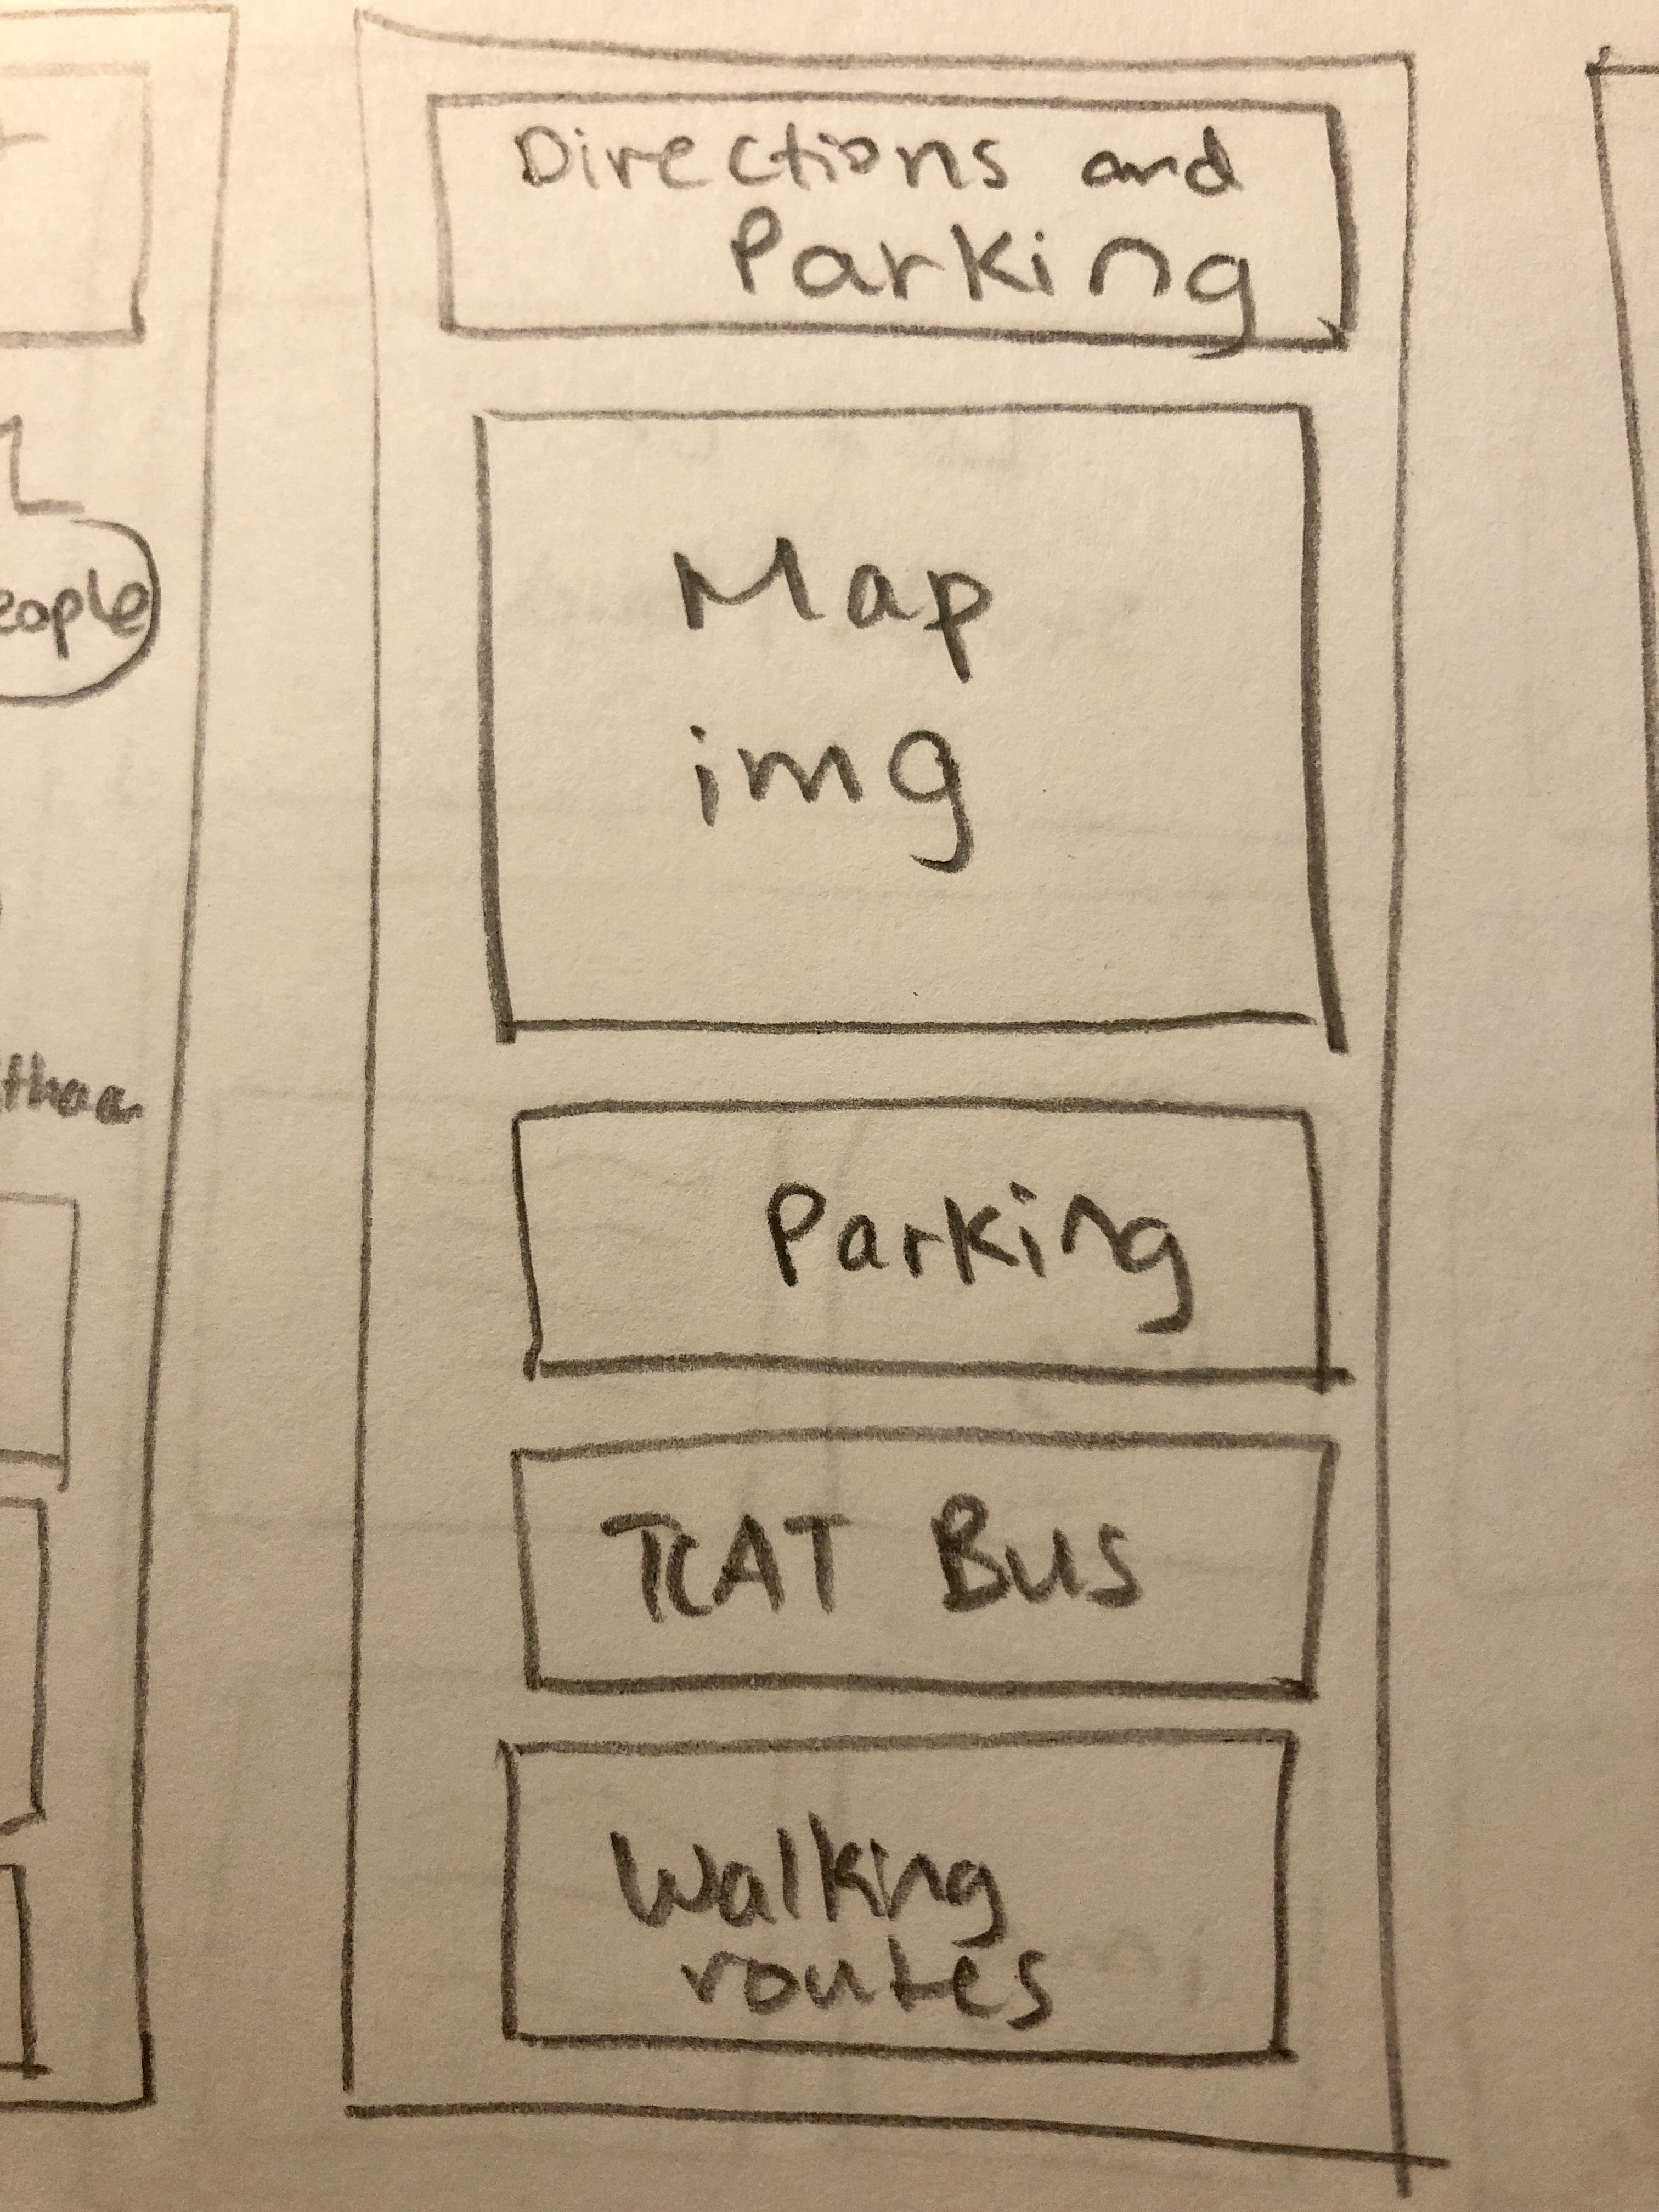 Directions and
Parking
Map
img
Parking
TCAT Bus
Walking
routes